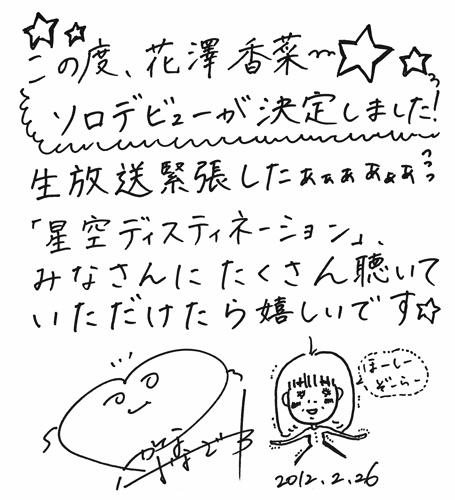 この度、花澤香菜〜
ソロデビューが決定しました!
生放送緊張したぁぁぁぁぁぁっっっ
「星空ディスティネーション」、
みなさんにたくさん聴いて
いただけたら嬉しいです☆
ほーしー
ぞーらー
2012.2.26